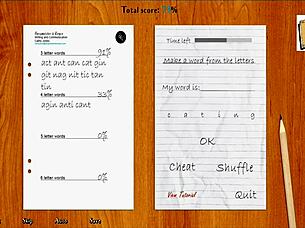 Total score: 78%
Writing and Communication
3 letter words 92%
act ant can cat gin
git nag nit tic tan
tin
4 letter words 33%
agin anti cant
5 letter words 0%
6 letter words 0%
Time left
Make a word from the letters
My word is:
c a t i n g
OK
Cheat Shuffle
View Tutorial Quit
Skip Auto Save